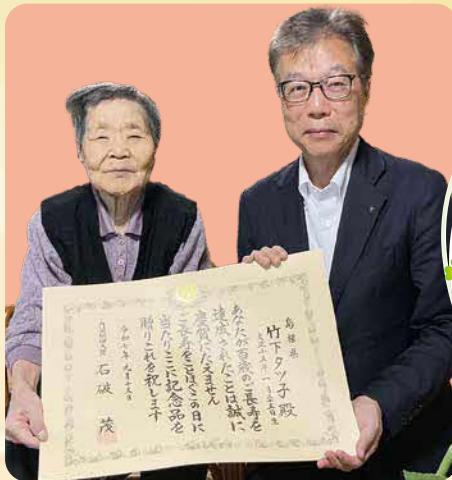 島根県
竹下タツ子殿
あなたが百歳のご長寿を
達成されたことは誠に
慶賀にたえません
ご長寿をことほぐこの日に
当たりここに記念品を
贈りこれを祝します
令和七年九月十五日
内閣総理大臣 石破 茂